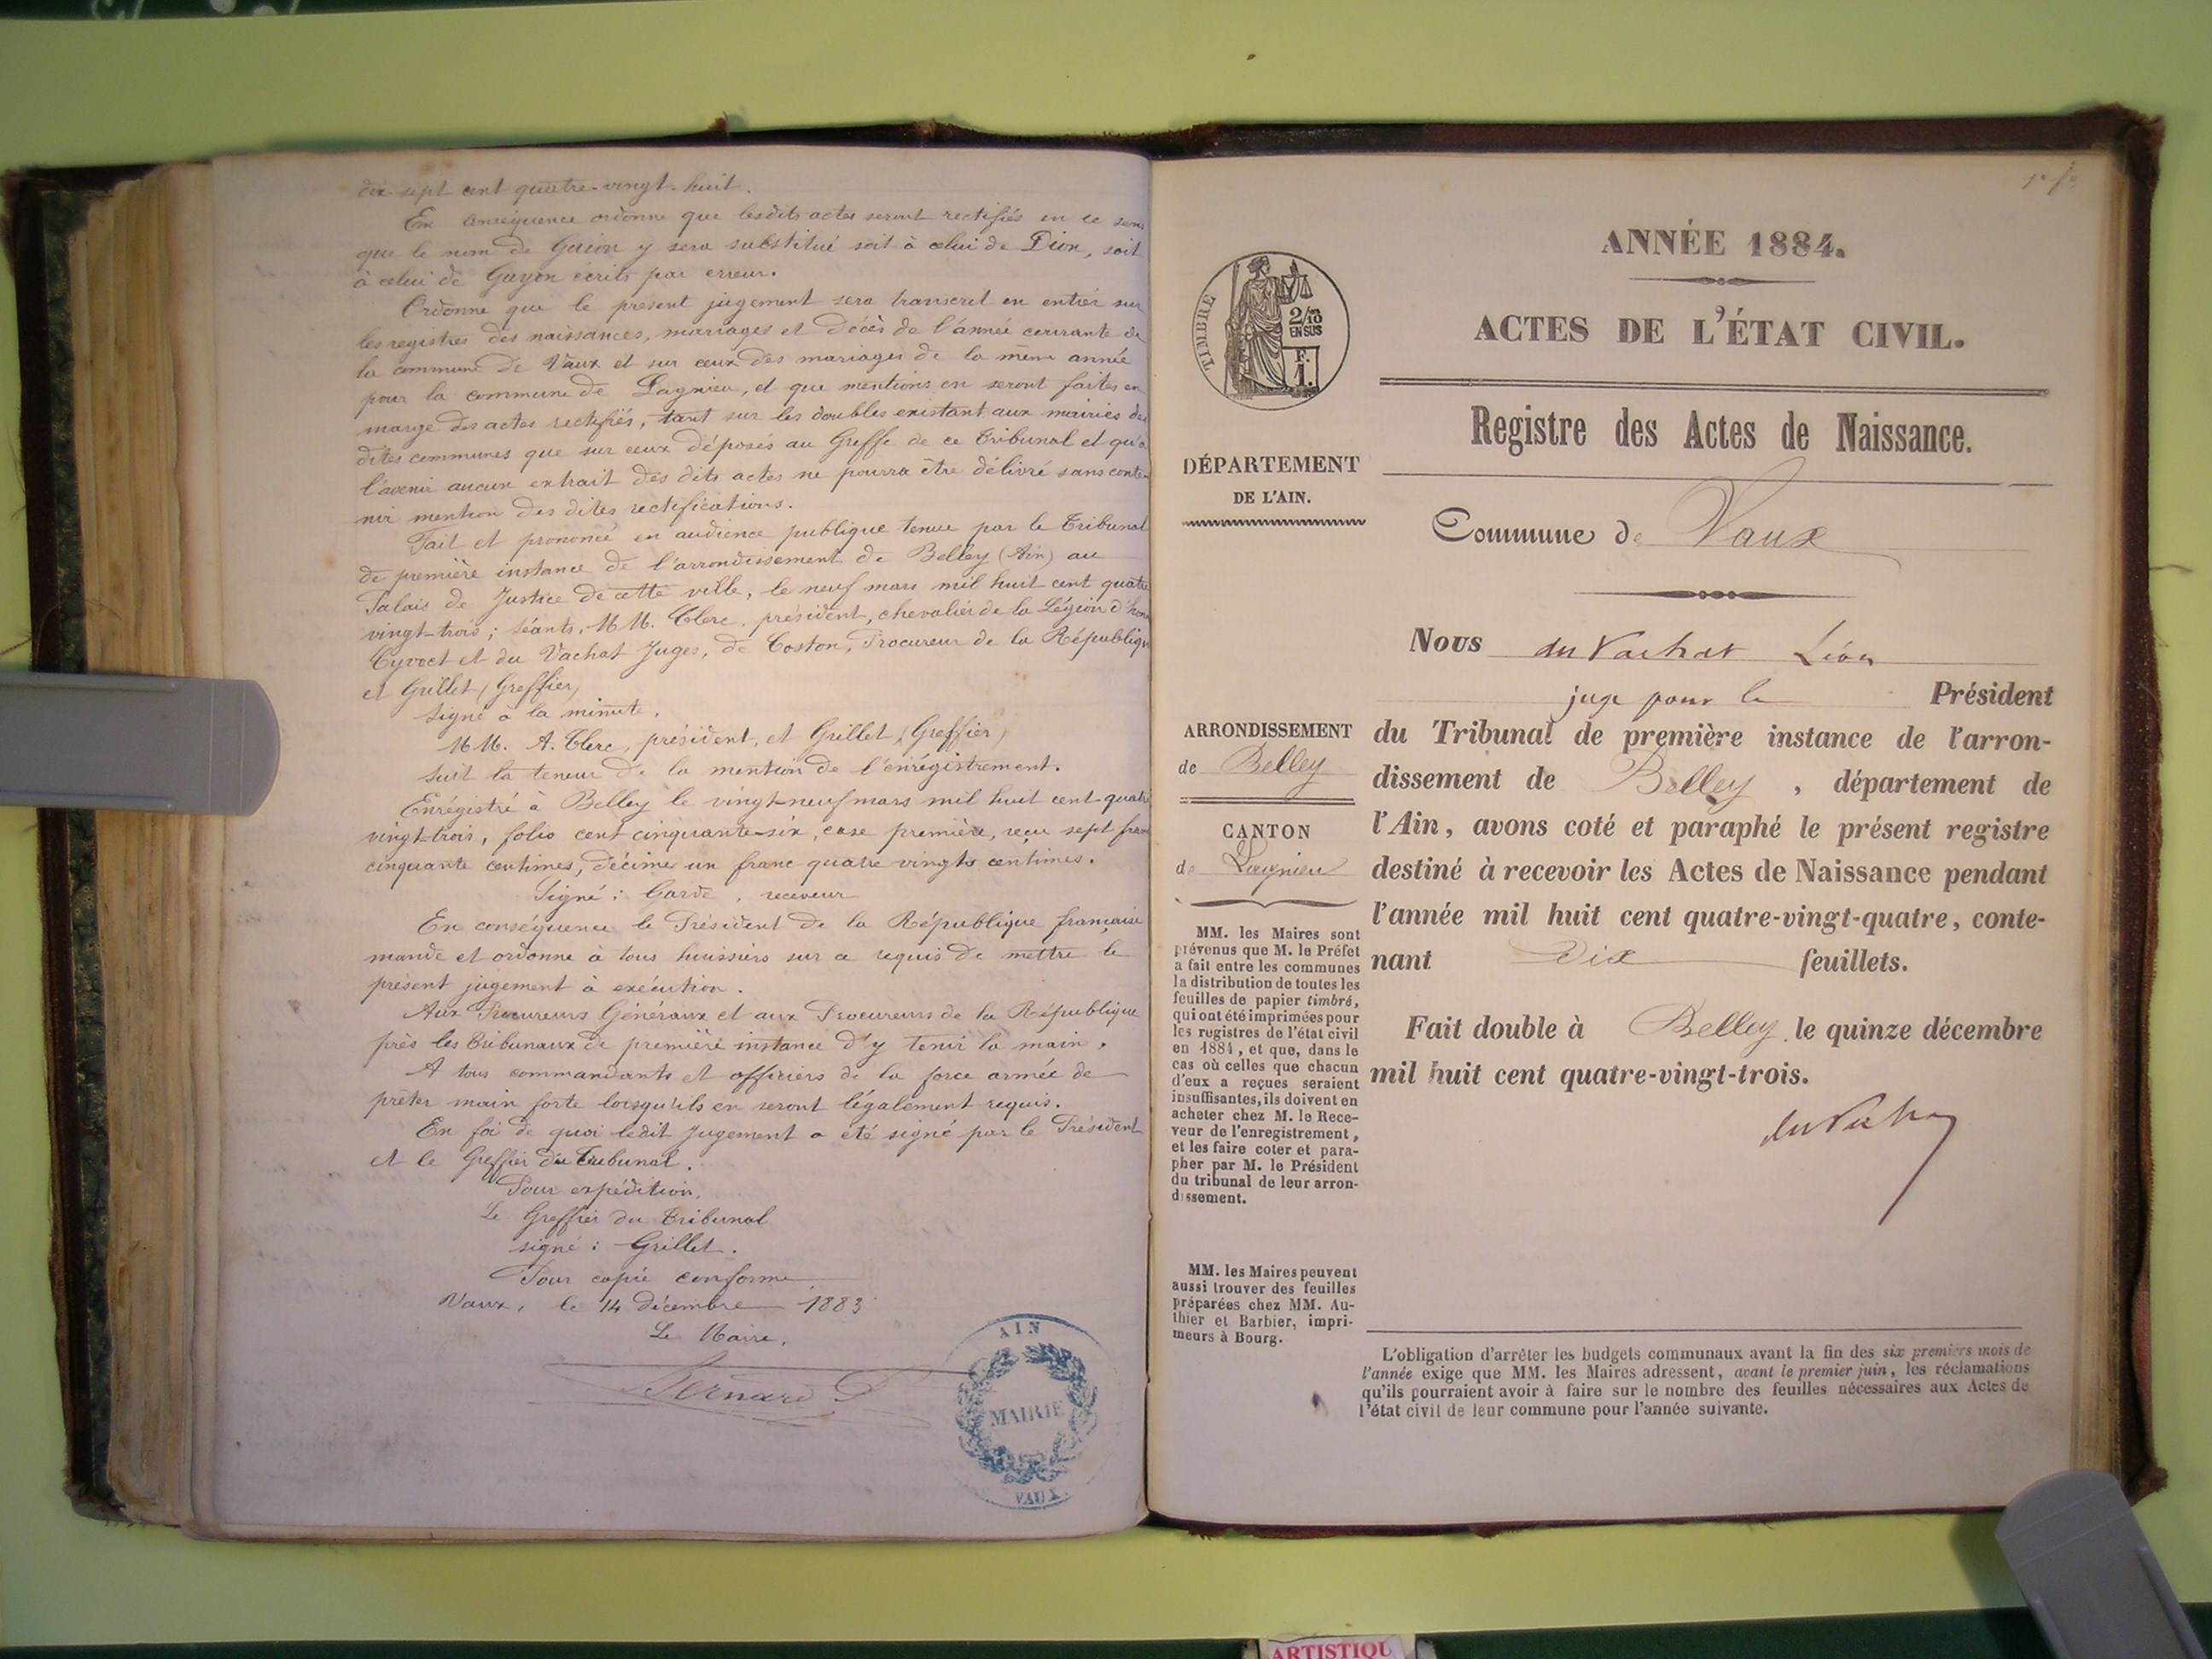 dix-sept cent quatre-vingt-huit.
En conséquence ordonne que lesdits actes seront rectifiés en ce sens
que le nom de Guion y sera substitué soit à celui de Dion, soit
à celui de Guyon écrits par erreur.
Ordonne que le présent jugement sera transcrit en entier sur
les registres des naissances, mariages et décès de l'année courante de
la commune de Vaux et sur ceux des mariages de la même année
pour la commune de Lagnieu, et que mentions en seront faites en
marge des actes rectifiés, tant sur les doubles existant aux mairies des
dites communes que sur ceux déposés au Greffe de ce Tribunal et qu'à
l'avenir aucun extrait des dits actes ne pourra être délivré sans conte-
nir mention des dites rectifications.
Fait et prononcé en audience publique tenue par le Tribunal
de première instance de l'arrondissement de Belley (Ain) au
Palais de Justice de cette ville, le neuf mars mil huit cent quatre
vingt-trois; séants, MM. Clerc, président, chevalier de la Légion d'hon
Cyvoct et du Vachat Juges, de Coston, Procureur de la République
et Grillet (Greffier)
Signé à la minute.
MM. A. Clerc, président, et Grillet (Greffier)
Suit la teneur de la mention de l'enrégistrement.
Enrégistré à Belley le vingt-neuf mars mil huit cent quatre
vingt-trois, folio cent cinquante-six, case première, reçu sept fran
cinquante centimes, décime un franc quatre vingts centimes.
Signé: Garde, receveur
En conséquence le Président de la République française
mande et ordonne à tous huissiers sur ce requis de mettre le
présent jugement à exécution.
Aux Procureurs Généraux et aux Procureurs de la République
près les Tribunaux de première instance d'y tenir la main.
A tous commandants et officiers de la force armée de
prêter main forte lorsqu'ils en seront légalement requis.
En foi de quoi ledit Jugement a été signé par le Président
et le Greffier du Tribunal.
Pour expédition,
Le Greffier du Tribunal
signé: Grillet.
Pour copie conforme
Vaux, le 14 décembre 1883
Le Maire,
Bernard
AIN
MAIRIE
VAUX
ANNÉE 1884.
ACTES DE L'ÉTAT CIVIL.
Registre des Actes de Naissance.
TIMBRE
2/10
EN SUS
F.
1.
DÉPARTEMENT
DE L'AIN.
Commune de Vaux
Nous du Vachat Léon
juge pour le Président
du Tribunal de première instance de l'arron-
dissement de Belley, département de
l'Ain, avons coté et paraphé le présent registre
destiné à recevoir les Actes de Naissance pendant
l'année mil huit cent quatre-vingt-quatre, conte-
nant Dix feuillets.
Fait double à Belley, le quinze décembre
mil huit cent quatre-vingt-trois.
ARRONDISSEMENT
de Belley
CANTON
de Lagnieu
MM. les Maires sont
prévenus que M. le Préfet
a fait entre les communes
la distribution de toutes les
feuilles de papier timbré,
qui ont été imprimées pour
les registres de l'état civil
en 1884, et que, dans le
cas où celles que chacun
d'eux a reçues seraient
insuffisantes, ils doivent en
acheter chez M. le Rece-
veur de l'enregistrement,
et les faire coter et para-
pher par M. le Président
du tribunal de leur arron-
dissement.
MM. les Maires peuvent
aussi trouver des feuilles
préparées chez MM. Au-
thier et Barbier, impri-
meurs à Bourg.
L'obligation d'arrêter les budgets communaux avant la fin des six premiers mois de
l'année exige que MM. les Maires adressent, avant le premier juin, les réclamations
qu'ils pourraient avoir à faire sur le nombre des feuilles nécessaires aux Actes de
l'état civil de leur commune pour l'année suivante.
ARTISTIQU